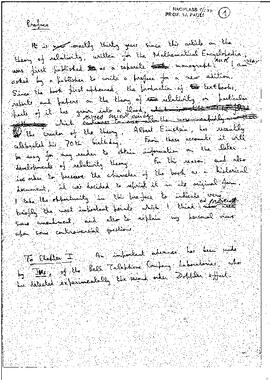 NACHLASS
PROF. W. PAULI
1
Preface
It is exactly thirty years since this article on the
theory of relativity, written for the Mathematical Encyclopedia,
was first published as a separate monograph,
asked by a publisher to write a preface for a new edition.
Since the book first appeared, the production of textbooks,
reports and papers on the theory of relativity or particular
parts of it has grown into a flood,
which
the creator of the theory. Albert Einstein, has recently
celebrated his 70th birthday. From these accounts it will
be easy for any reader to obtain information on the later
developments of relativity theory. For this reason, and also
in order to preserve the character of the book as a historical
document, it was decided to reprint it in its original form.
I take the opportunity in this preface to indicate
briefly the most important points which I think
some amendment, and also to explain my personal view
upon some controversial questions.
To Chapter I An important advance has been made
by Ives, of the Bell Telephone Company Laboratories, who
has detected experimentally the second order Doppler effect.